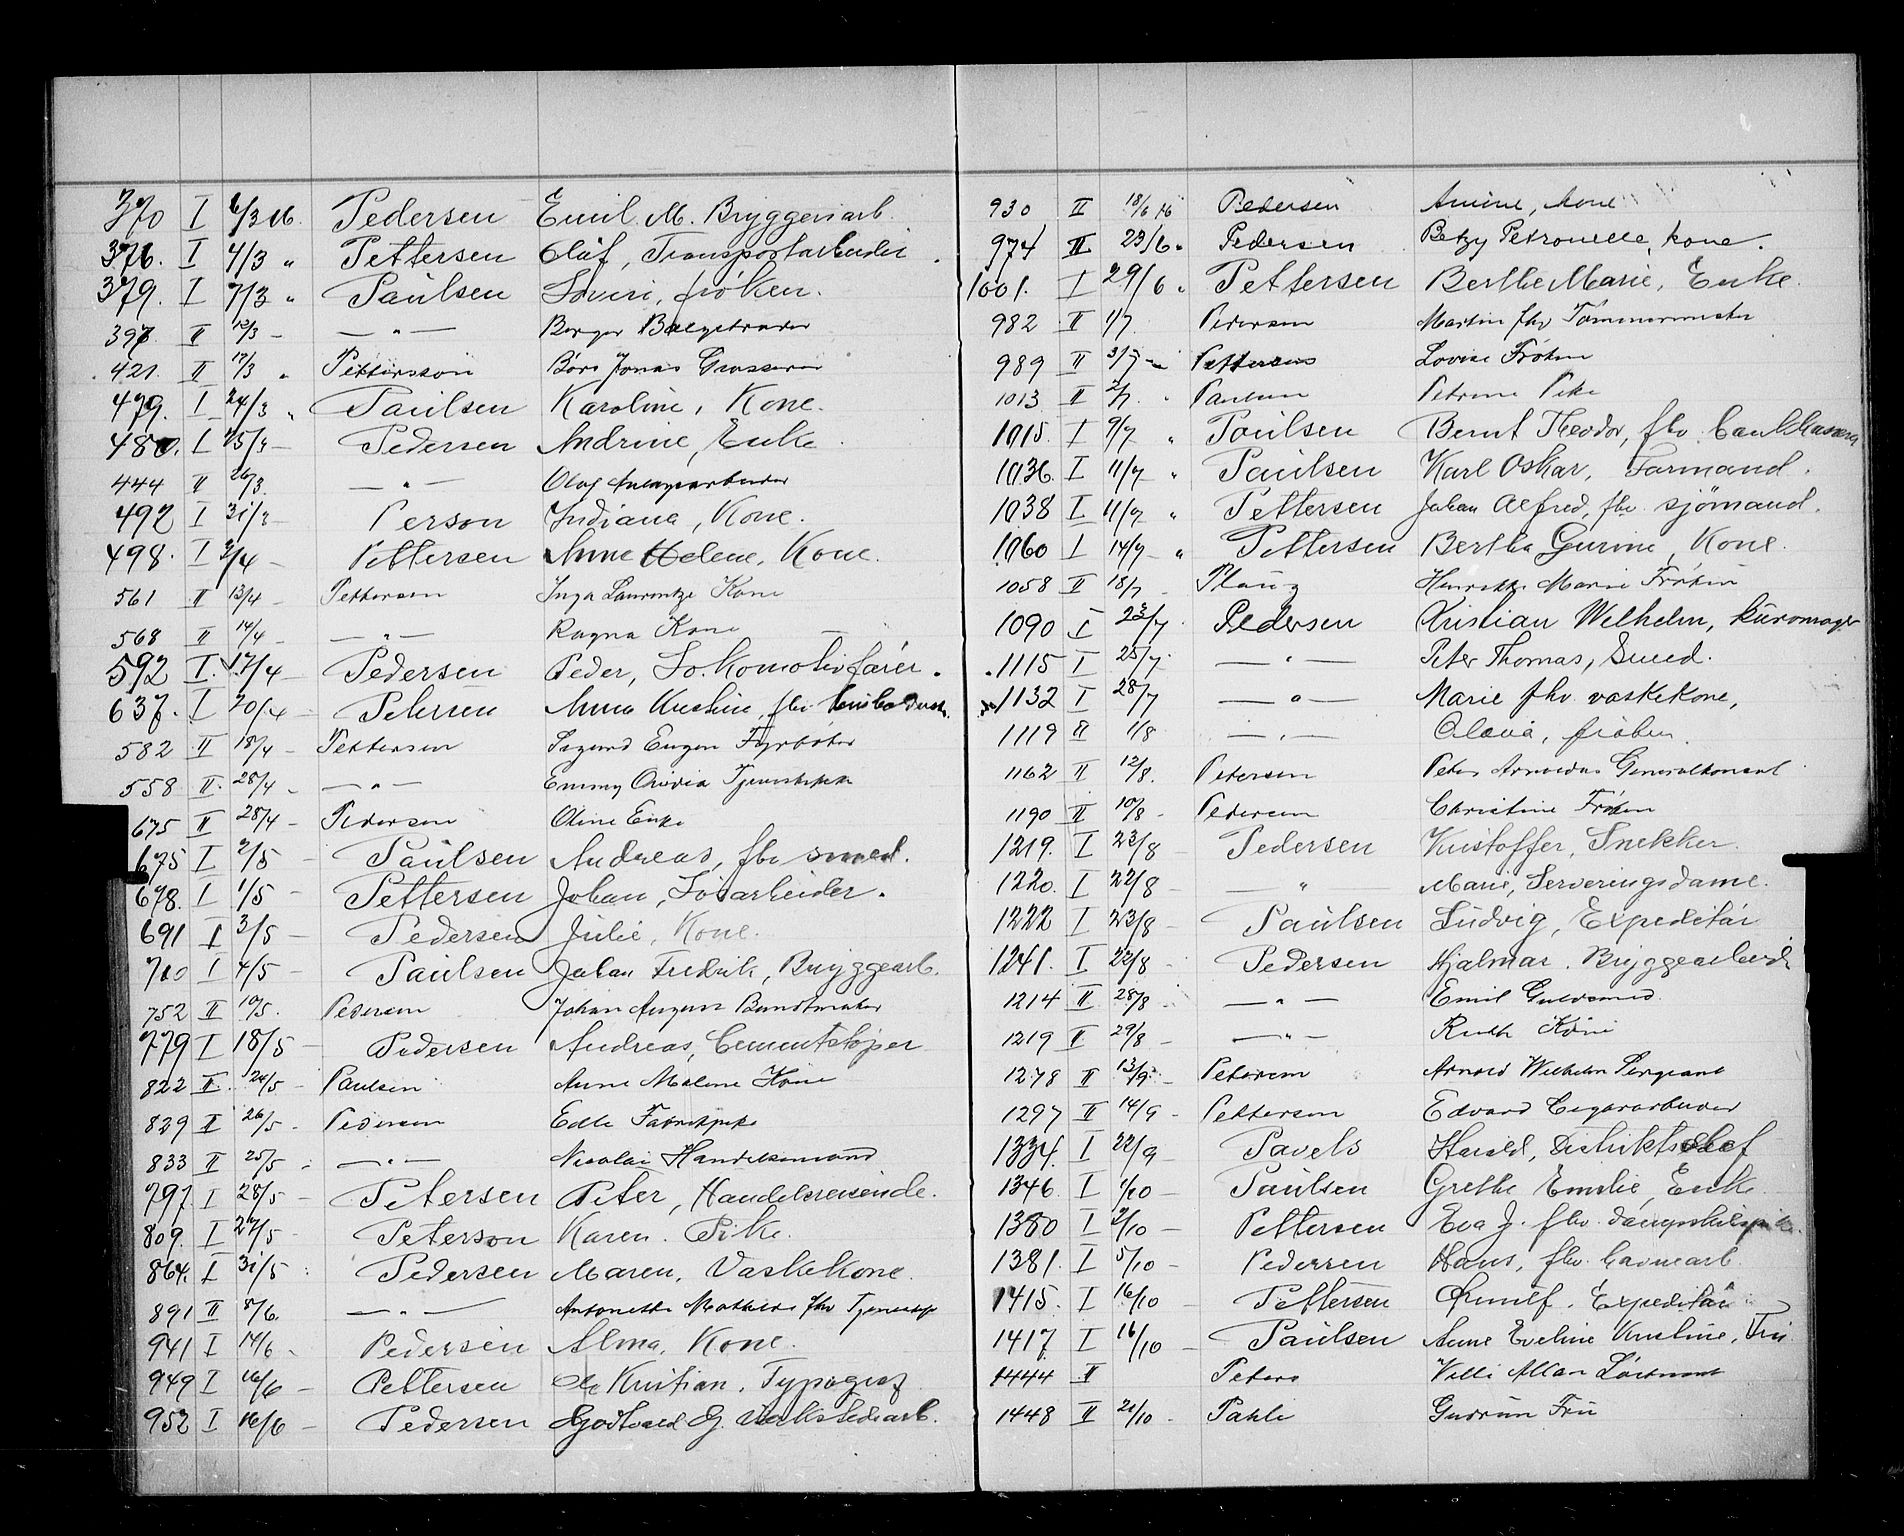 370 I 6/3 16. Pedersen Emil M. Bryggeriarb.
376. I 4/3 " Pettersen Olaf, Transportarbeider
379. I 7/3 " Paulsen Lovise, frøken.
397. II 12/3 - — " — Borger
421. II 17/3 " Pettersson Jonas Grosserer
479. I 24/3 " Paulsen Karoline, Kone.
480. I 25/3 - Pedersen Andrine, Enke.
444 II 26/3. — " — Olaf
492 I 31/3 - Person Indiana, Kone.
498. I 3/4 - Pettersen Anne Helene, Kone.
561 II 13/4 - Pettersen Inga Laurentze Kone
568 II 14/4 - — " — Ragna Kone
592 I. 17/4 - Pedersen Peder, Lokomotivfører.
637. I 20/4 - Petersen Anna Kristine, fhv
582 II 18/4 - Pettersen Sigurd Eugen Fyrbøter
558 II. 28/4 - — " — Emmy Tjenestepike
675 II 28/4 - Pedersen Oline Enke
675 I 2/5 - Paulsen Andreas, fhv smed.
678. I 1/5 - Pettersen Johan, Løsarbeider.
691 I 3/5 - Pedersen Julie, Kone.
710 I 4/5 - Paulsen Johan Fredrik, Bryggearb.
752 II 10/5. Pedersen Johan August Buntmaker
779 I 18/5 - Pedersen Andreas, Cementstøper
822 II. 24/5 - Paulsen Anne Malene Kone
829 II 26/5 - Pedersen Edle Fabrikpike
833 II 25/5 - — " — Nicolai Handelsmand
797. I 28/5 - Petersen Peter, Handelsreisende.
809. I 27/5 - Peterson Karen. Pike.
864. I 31/5 - Pedersen Maren, Vaskekone.
891 II 8/6. — " — Antonette Mathilde fhv Tjenestep
941 I 14/6 - Pedersen Alma, Kone.
949 I 16/6 - Pettersen Kristian, Typograf
952 I 16/6 - Pedersen Godtvard G. Verkstedarb.
930 II 18/6 16 Pedersen Amine, Kone
974 II 23/6 " Pedersen Betzy Petronelle, kone.
1001. I 29/6 " Pettersen Berthe Marie, Enke.
982 II 1/7 Pedersen Martin fhv Tømmermester
989 II 3/7 - Pettersen Lovise Frøken
1013 II 2/7 " Paulsen Petrine Pike
1015. I 9/7 " Paulsen Bernt Theodor, fhv. bankkasserer
1036. I 11/7 " Paulsen Karl Oskar, Formand.
1038 I 11/7 " Pettersen Johan Alfred, fhv. sjömand.
1060 I 14/7 - " Pettersen Bertha Gurine, Kone.
1058 II 18/7 - Henrikke Marie Frøken
1090 I 23/7 Pedersen Kristian Welhelm, kuromager
1115 I 25/7. — " — Peter Thomas, Smed.
1132 I 28/7 — " — Marie fhv. vaskekone,
1119 II 1/8 — " — Olava, frøken.
1162 II 12/8. Petersen Peter Generalkonsul
1190 II 10/8 - Pedersen Christine Frøken
1219. I 23/8 - Pedersen Kristoffer, Snekker.
1220. I 22/8 - — " Marie, Serveringsdame.
1222 I 23/8 - Paulsen Ludvig, Expeditør
1241. I 22/8 - Pedersen Hjalmar. Bryggearbeid.
1214 II 28/8 - — " — Emil Guldsmed.
1219 II 29/8 - — " — Ruth Kone
1278 II 13/9. - Petersen Arnold Wilhelm Sergeant
1297 II 14/9 - Pettersen Edvard Cigararbeider
1334. I 22/9 - Pavels Harald, Distriktschef
1346. I 1/10 - Paulsen Grethe Emilie, Enke
1380 I 2/10 - Pettersen Eva J. fhv.
1381. I 5/10 - Pedersen Hans, fhv. havnearb.
1415. I 16/10 - Pettersen Expeditør
1417 I 16/10 - Paulsen Anne Eveline Kristine, Fru
1444 II Peters Villi Allan Løitnant
1448 II 21/10 - Pahle Gudrun Fru